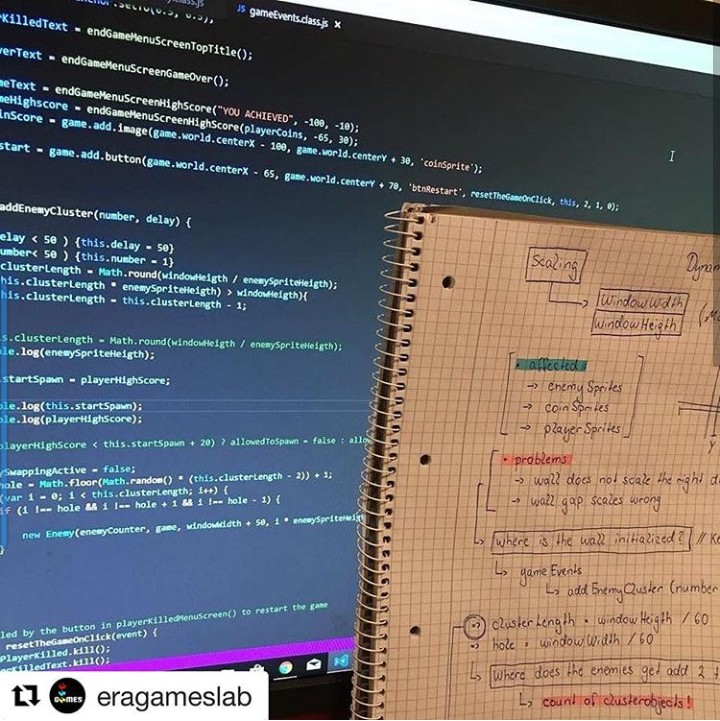 gameEvents.class.js ×
KilledText = endGameMenuScreenTopTitle();
verText = endGameMenuScreenGameOver();
meText = endGameMenuScreenHighScore("YOU ACHIEVED", -100, -10);
meHighscore = endGameMenuScreenHighScore(playerCoins, -65, 30);
inScore = game.add.image(game.world.centerX - 100, game.world.centerY + 30, 'coinSprite');
start = game.add.button(game.world.centerX - 65, game.world.centerY + 70, 'btnRestart', resetTheGameOnClick, this, 2, 1, 0);
addEnemyCluster(number, delay) {
elay < 50 ) {this.delay = 50}
umber< 50 ) {this.number = 1}
clusterLength = Math.round(windowHeigth / enemySpriteHeigth);
his.clusterLength * enemySpriteHeigth) > windowHeigth){
his.clusterLength = this.clusterLength - 1;
s.clusterLength = Math.round(windowHeigth / enemySpriteHeigth);
le.log(enemySpriteHeigth);
startSpawn = playerHighScore;
ole.log(this.startSpawn);
ole.log(playerHighScore);
playerHighScore < this.startSpawn + 20) ? allowedToSpawn = false : allo
ySwappingActive = false;
hole = Math.floor(Math.random() * (this.clusterLength - 2)) + 1;
(var i = 0; i < this.clusterLength; i++) {
if (i !== hole && i !== hole + 1 && i !== hole - 1) {
new Enemy(enemyCounter, game, windowWidth + 50, i * enemySpriteHeigt
}
led by the button in playerKilledMenuScreen() to restart the game
resetTheGameOnClick(event) {
PlayerKilled.kill();
erKilledText.kill();
Scaling
Dynam
WindowWidth
WindowHeigth
• affected:
→ enemySprites
→ coinSprites
→ playerSprites
y
• problems
→ wall does not scale the right d
→ wall gap scales wrong
↳ where is the wall initialized? // Ke
↳ gameEvents
↳ add EnemyCluster (number
→ clusterLength = windowHeigth / 60
→ hole = windowWidth / 60
↳ Where does the enemies get add 2 t
↳ count of clusterobjects!
GAMES
eragameslab